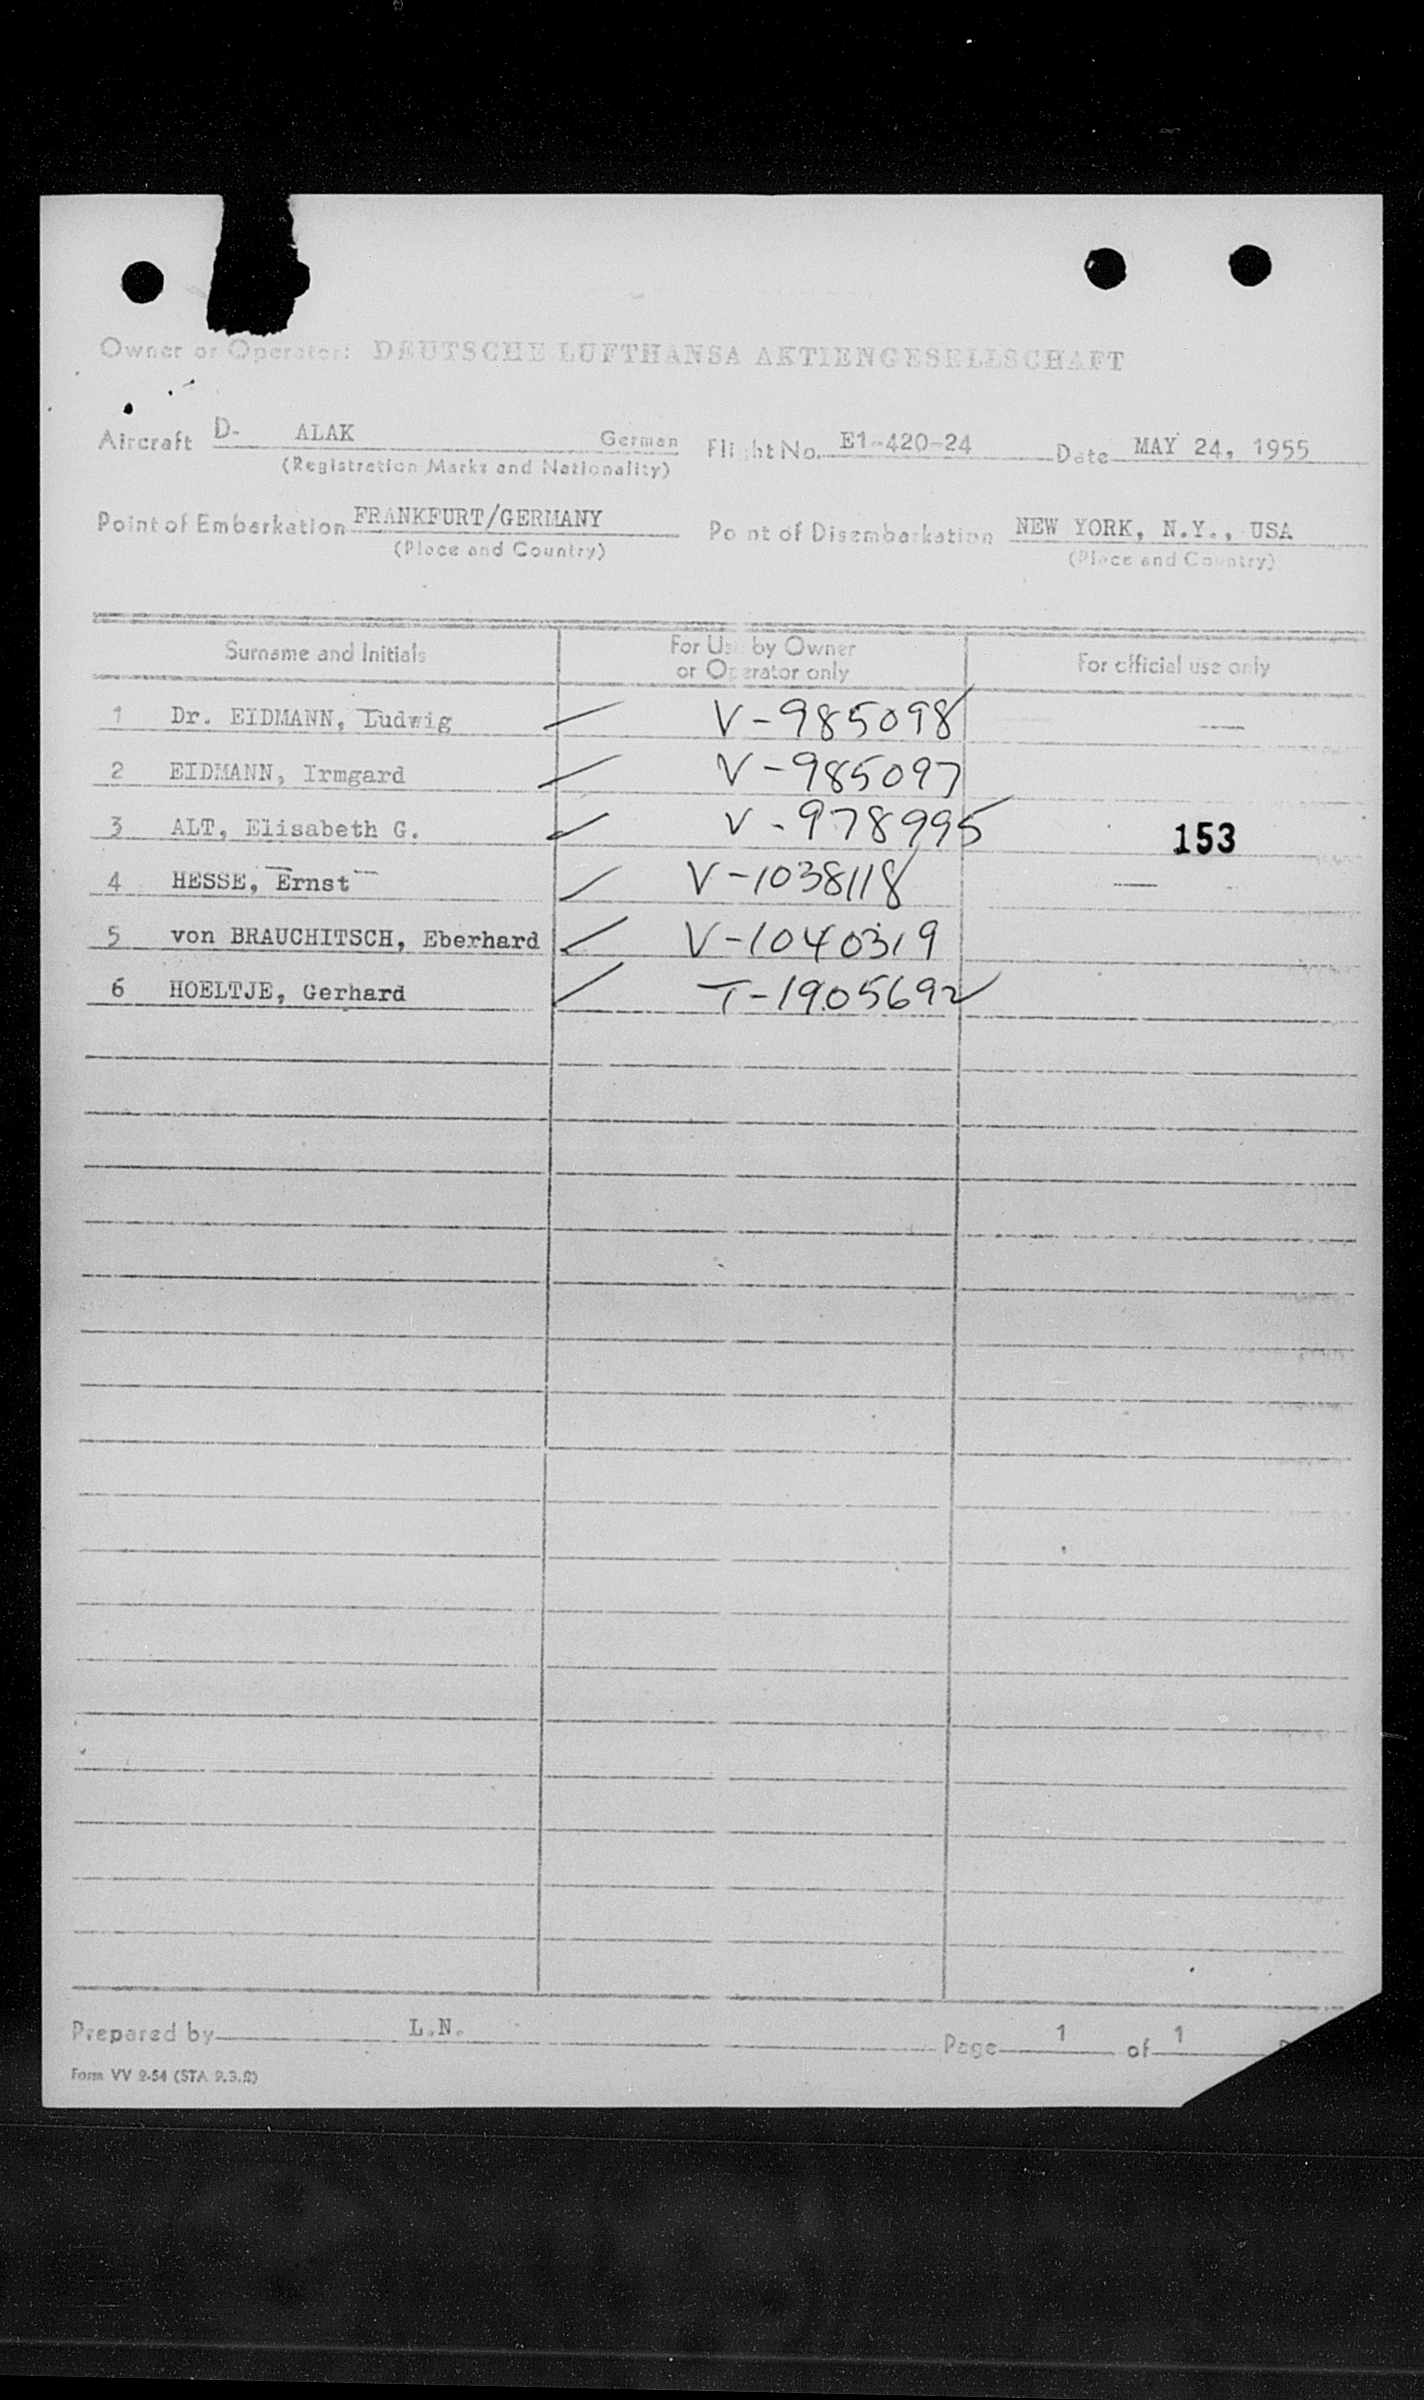 Owner or Operator: DEUTSCHE LUFTHANSA AKTIENGESELLSCHAFT
Aircraft D- ALAK German Flight No. E1-420-24 Date MAY 24, 1955
(Registration Marks and Nationality)
Point of Embarkation FRANKFURT/GERMANY Point of Disembarkation NEW YORK, N.Y., USA
(Place and Country) (Place and Country)
Surname and Initials For Use by Owner or Operator only For official use only
1 Dr. EIDMANN, Ludwig V-985098 —
2 EIDMANN, Irmgard V-985097
3 ALT, Elisabeth G. V-978995 153
4 HESSE, Ernst V-1038118 —
5 von BRAUCHITSCH, Eberhard V-1040319
6 HOELTJE, Gerhard T-1905692
Prepared by L.N. Page 1 of 1
Form VV 2-54 (STA 9.3.2)